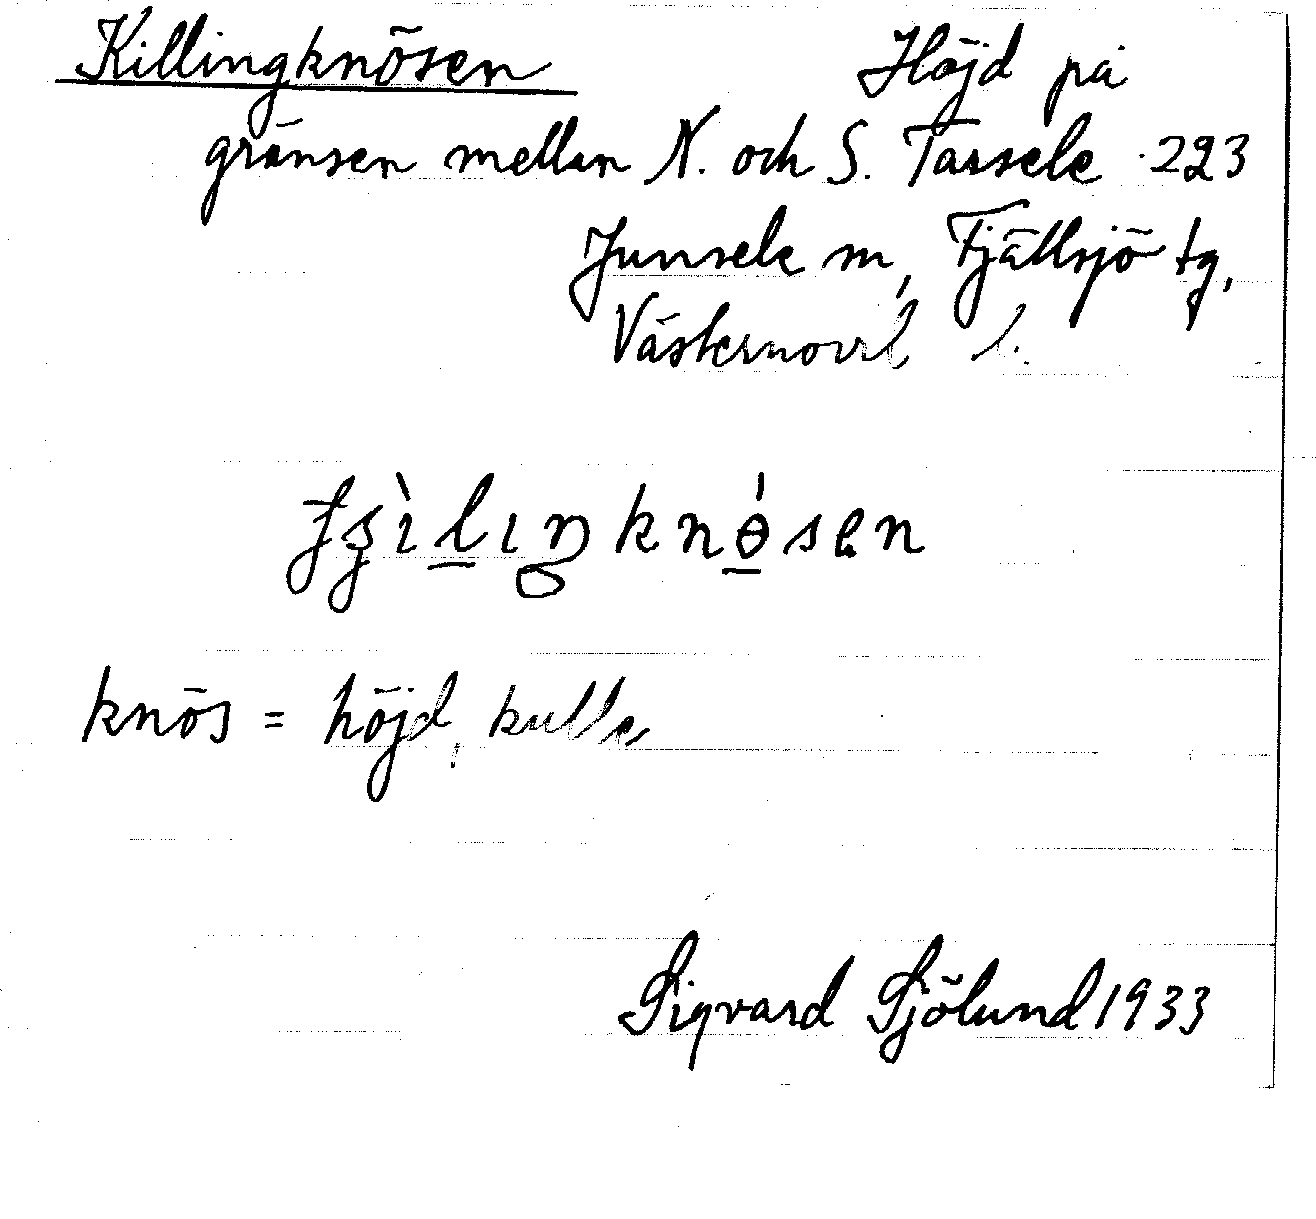 Killingknösen Höjd på
gränsen mellan N. och S. Tarsele 223
Junsele sn, Fjällsjö tg,
Västernorrl l.
knös = höjd, kulle
Sigvard Sjölund 1933